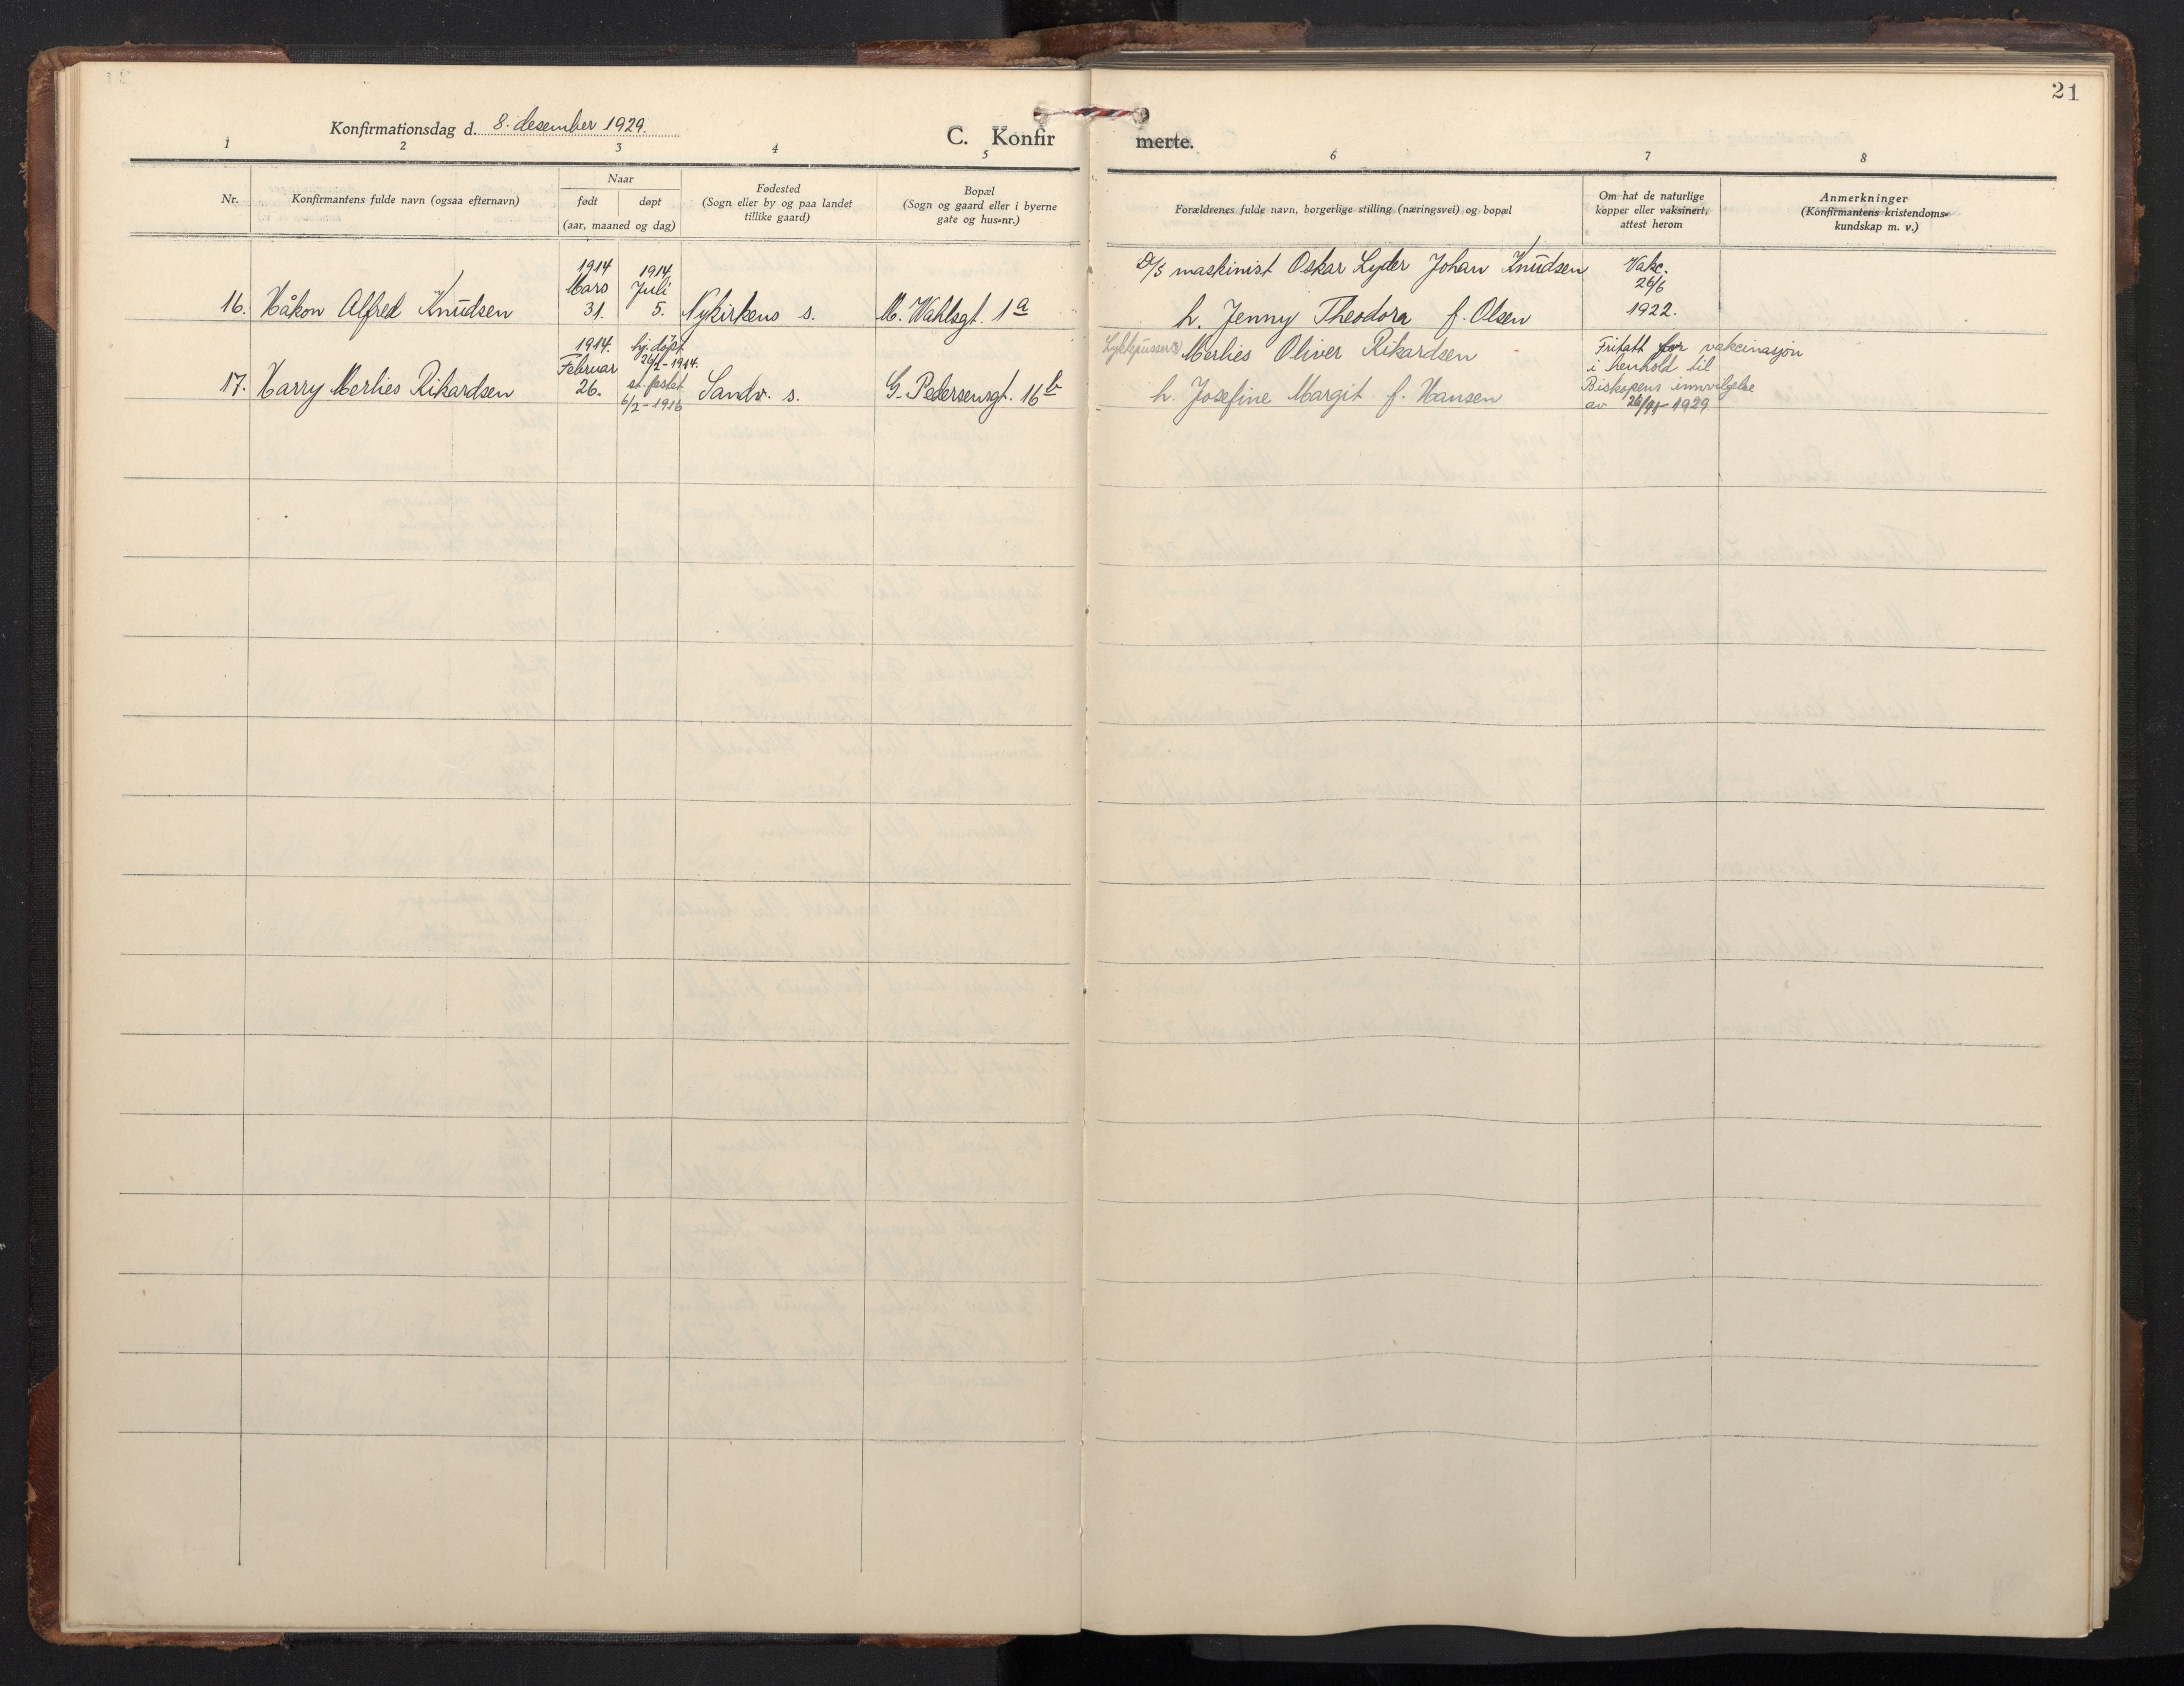 21
Konfirmationsdag d. 8. desember 1929.
C. Konfir merte.
1 2 3 4 5 6 7 8
Nr.
Konfirmantens fulde navn (ogsaa efternavn)
Naar
født døpt
(aar, maaned og dag)
Fødested
(Sogn eller by og paa landet
tillike gaard)
Bopæl
(Sogn og gaard eller i byerne
gate og hus=nr.)
Forældrenes fulde navn, borgerlige stilling (næringsvei) og bopæl
Om hat de naturlige
kopper eller vaksinert,
attest herom
Anmerkninger
(Konfirmantens kristendoms=
kundskap m. v.)
16. Håkon Alfred Knudsen
1914
Mars
31.
1914.
Juli
5.
Nykirkens s.
M. Wahlsgt. 1a
D/S maskinist Oskar Lyder Johan Knudsen
h. Jenny Theodora f. Olsen
Vakc.
26/6
1922.
17. Harry Merlies Rikardsen
1914.
Februar
26.
hj. døpt
26/2-1914.
st. festet
6/2-1916
Sandv. s.
G. Pedersensgt. 16b
Merlies Oliver Rikardsen
h. Josefine Margit f. Hansen
Fritatt for vakcinasjon
i henhold til
Biskopens innvilgelse
av 26/11-1929